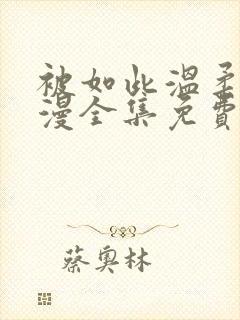 被如此溫柔
漫全集免費
蔡奧林